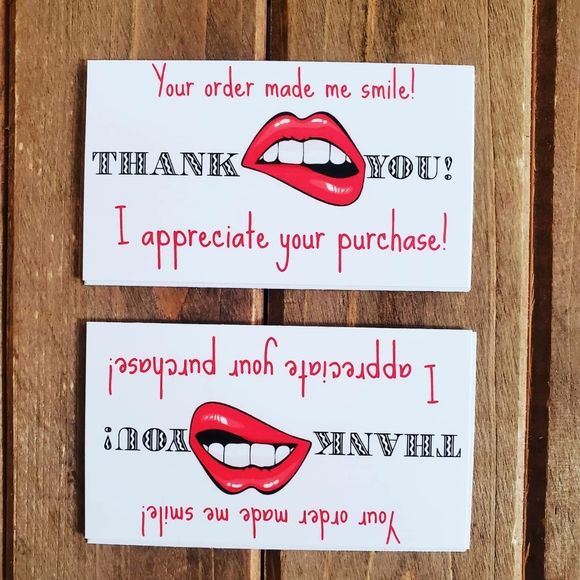 Your order made me smile!
THANK YOU!
I appreciate your purchase!
Your order made me smile!
THANK YOU!
I appreciate your purchase!